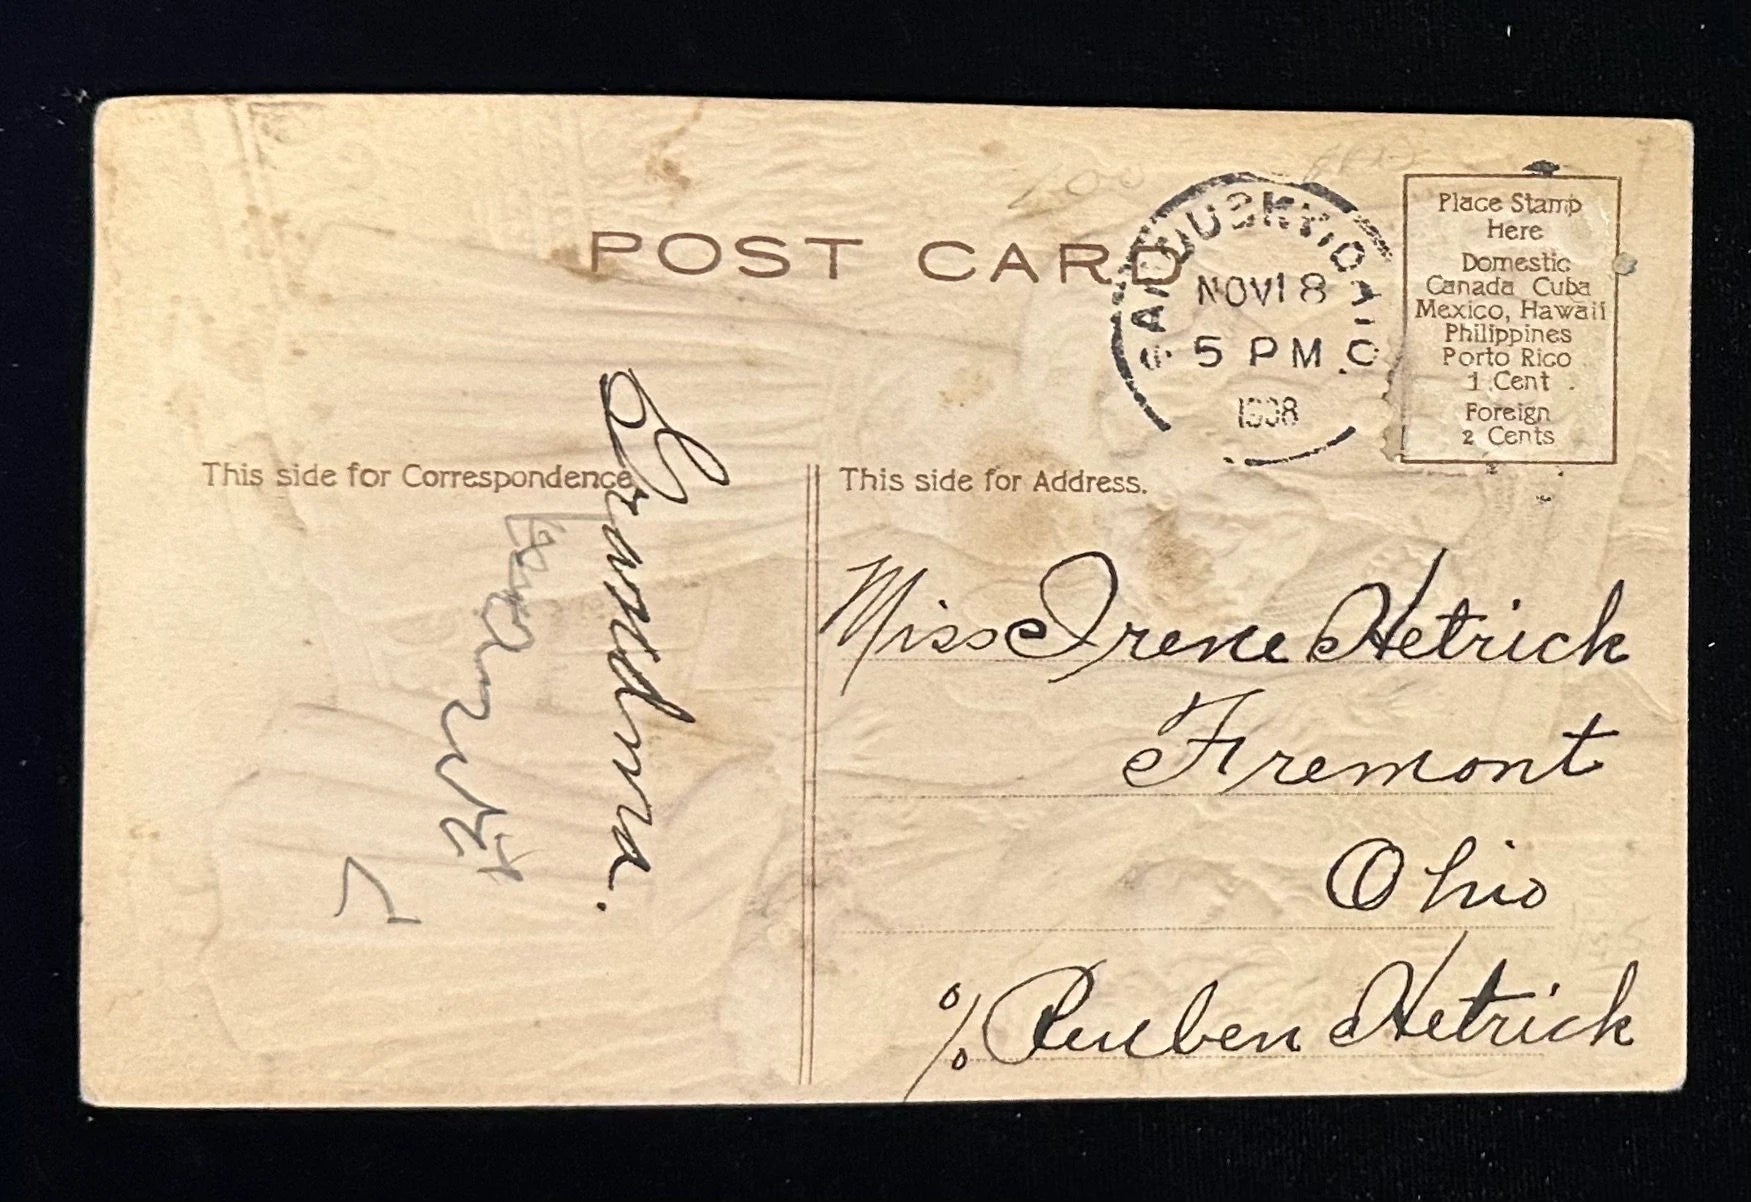 POST CARD
SANDUSKY, OHIO
NOV 18
5 PM
1908
Place Stamp
Here
Domestic
Canada Cuba
Mexico, Hawaii
Philippines
Porto Rico
1 Cent
Foreign
2 Cents
This side for Correspondence
Grandma.
This side for Address.
Miss Irene Hetrick
Fremont
Ohio
% Reuben Hetrick